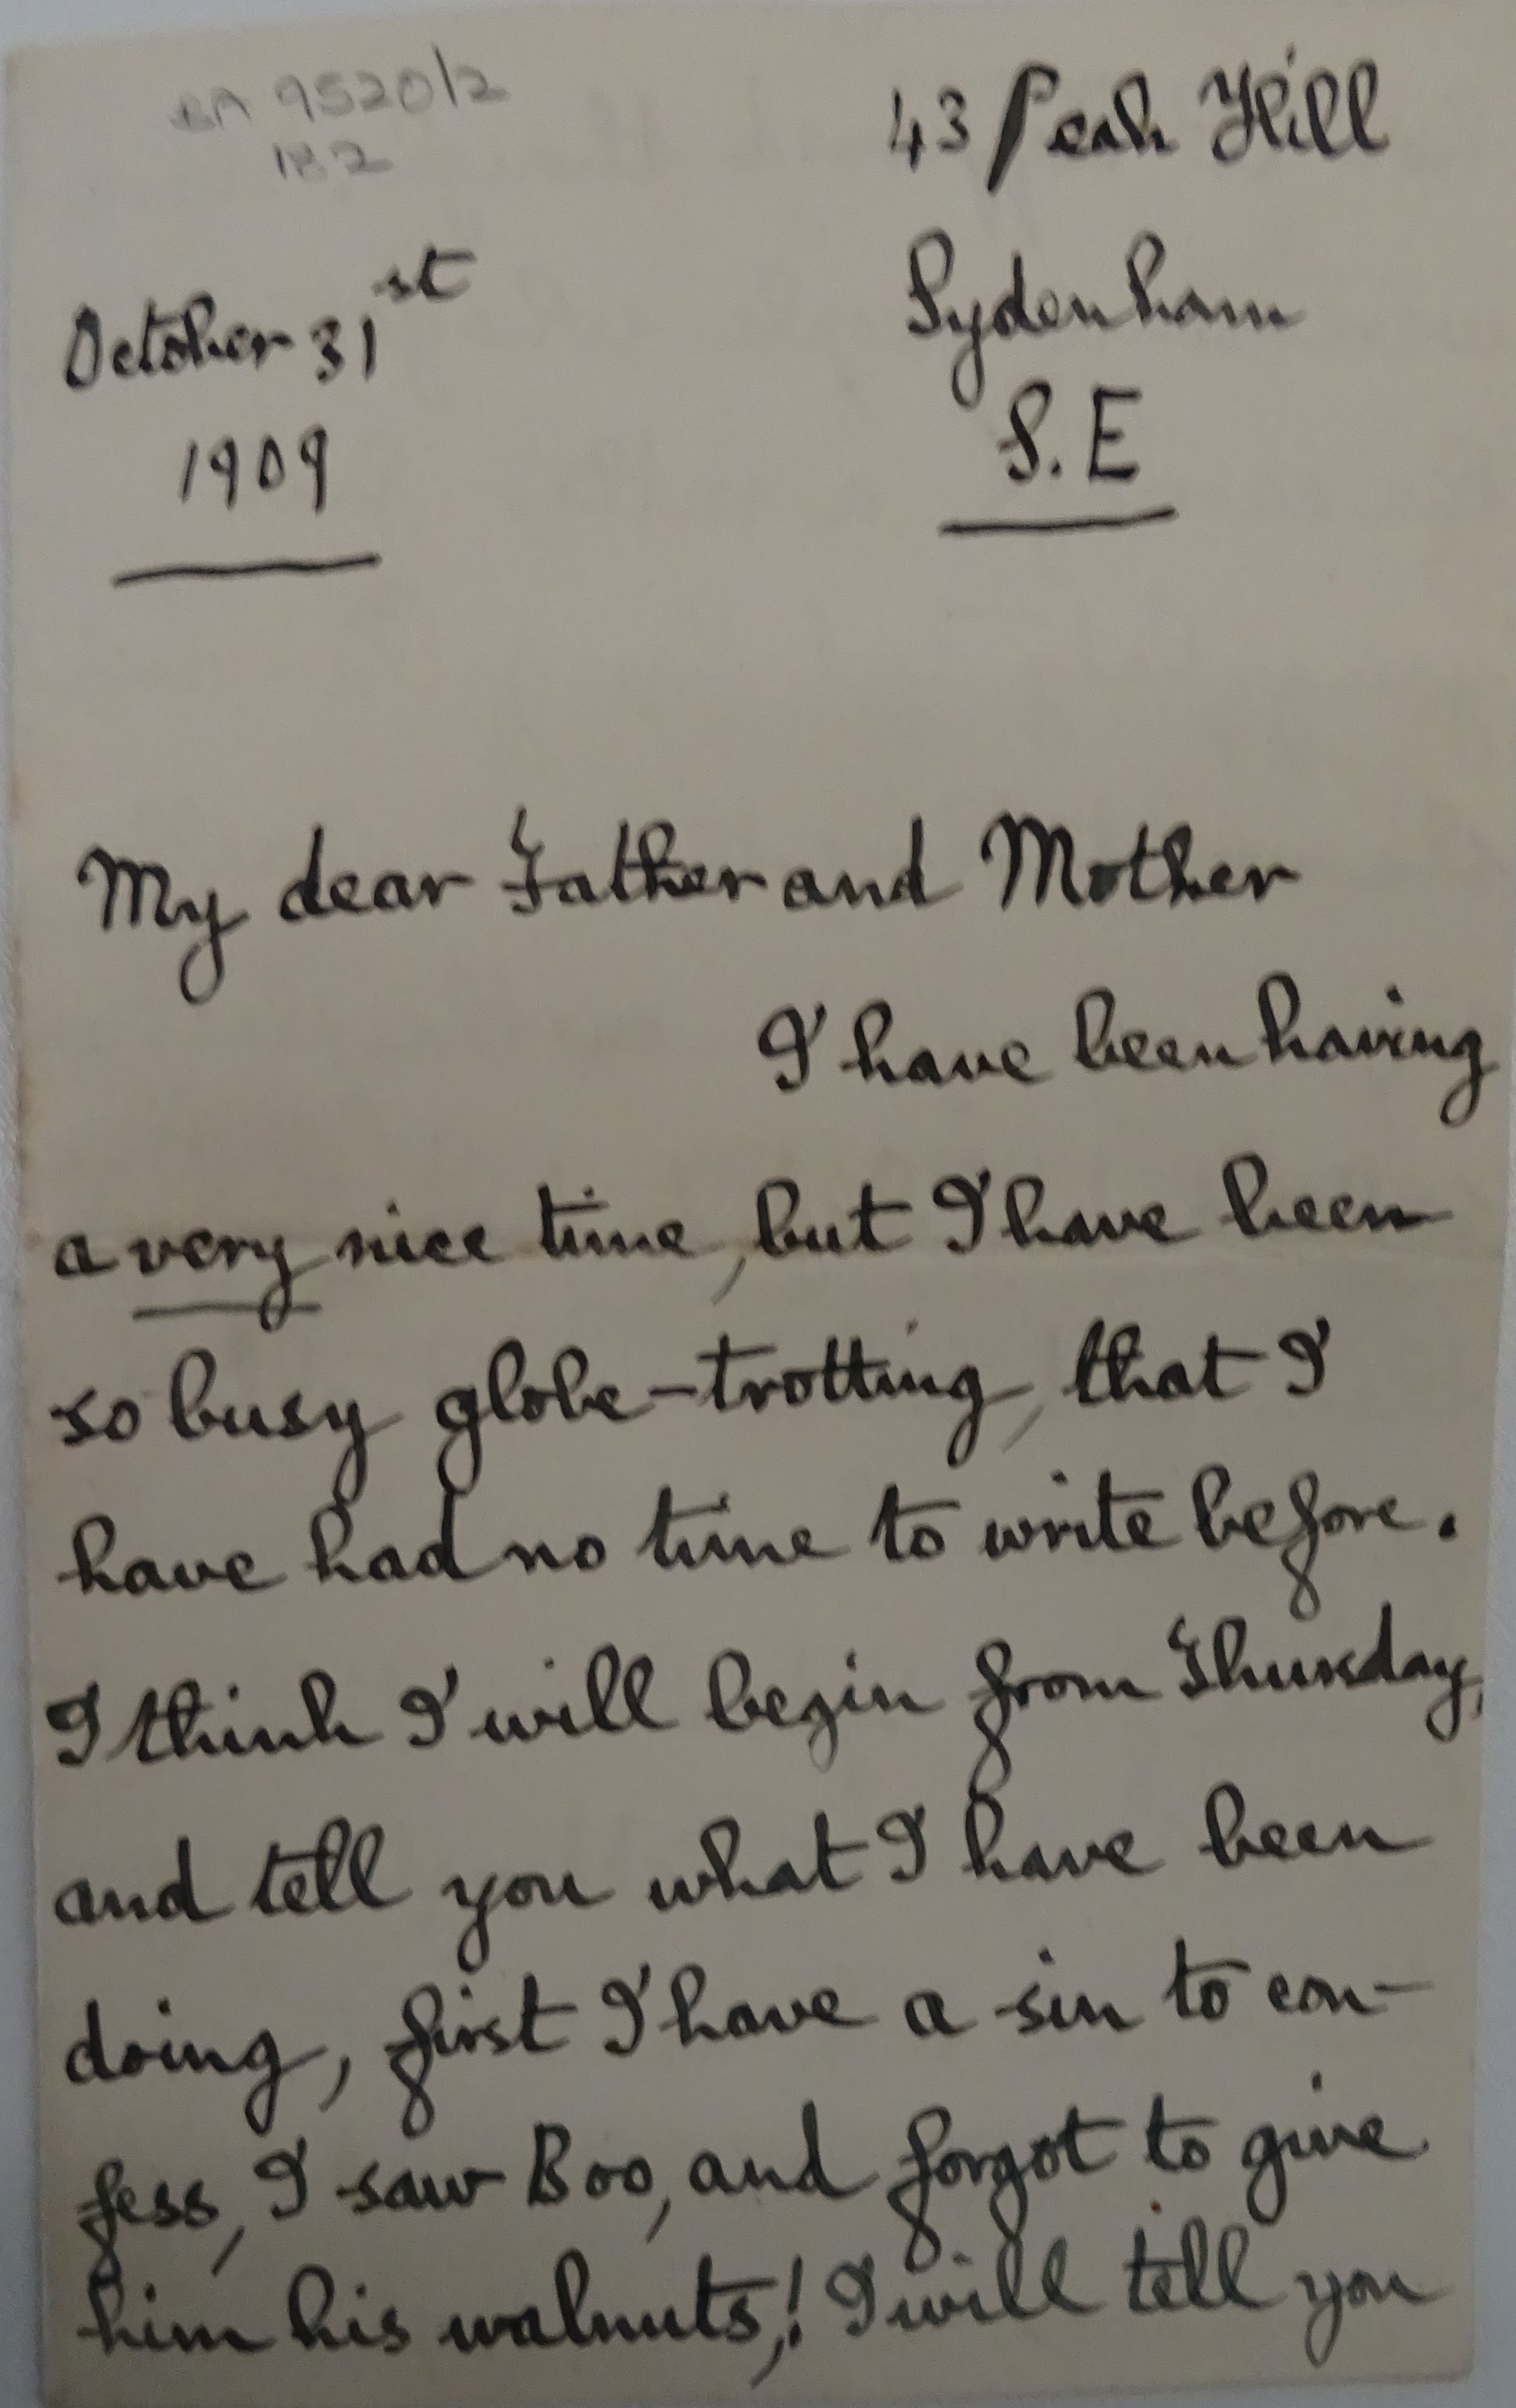 BA 9520/2
182
43 Peak Hill
Sydenham
S.E
October 31st
1909
My dear Father and Mother
I have been having
a very nice time, but I have been
so busy globe-trotting, that I
have had no time to write before.
I think I will begin from Thursday,
and tell you what I have been
doing, first I have a sin to con-
fess, I saw Boo, and forgot to give
him his walnuts,! I will tell you